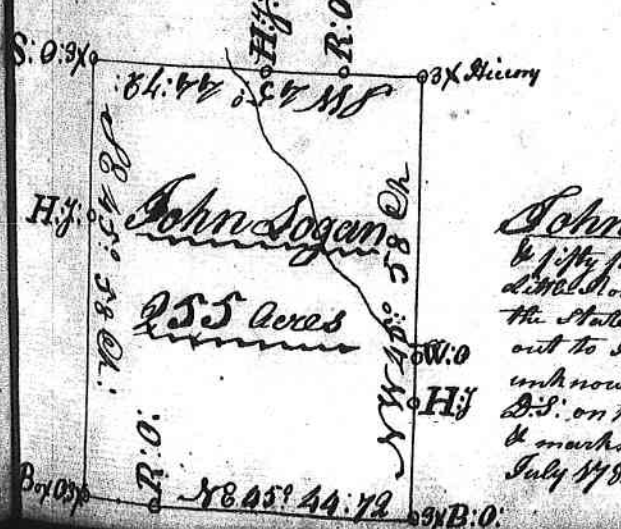 H:J:
R:O
S:O:3X
3X Hicory
SW 45° 44:72
SE 45° 58 Ch:
H:J:
John Logan
255 Acres
NW 45° 58 Ch
W:O
H:J
R:O:
NE 45° 44:72
3XB:O:
John
& fifty
Little
the State
out to
unknow
D:S: on
& marks
July 178